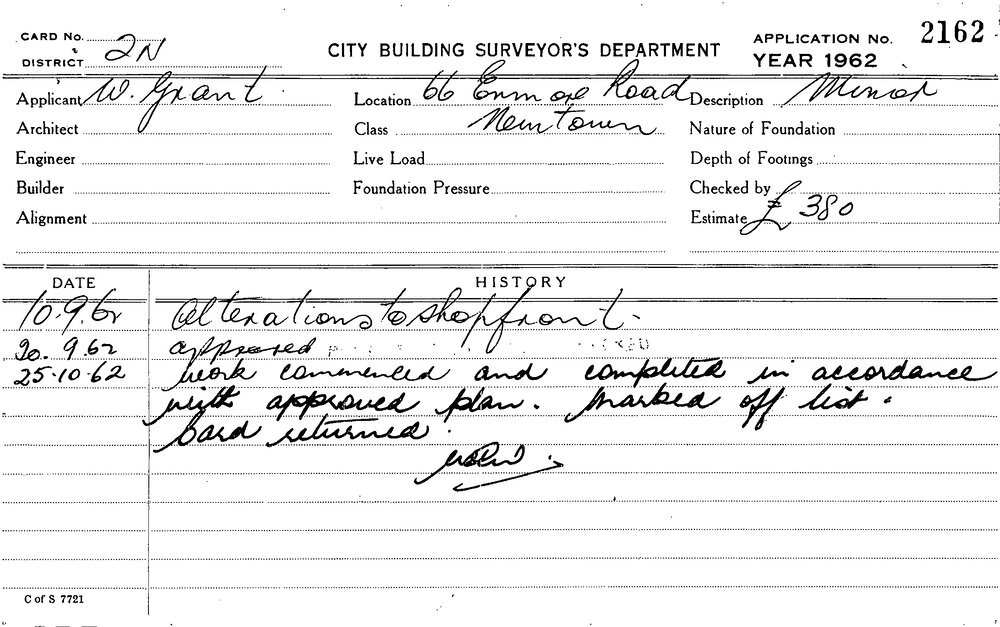 CARD No.
DISTRICT 2N
CITY BUILDING SURVEYOR'S DEPARTMENT
APPLICATION No. 2162
YEAR 1962
Applicant W. Grant
Location 66 Enmore Road
Description Minor
Architect
Class Newtown
Nature of Foundation
Engineer
Live Load
Depth of Footings
Builder
Foundation Pressure
Checked by
Alignment
Estimate £380
DATE
HISTORY
10.9.62 Alterations to shopfront.
20.9.62 approved
25.10.62 Work commenced and completed in accordance
with approved plan. Marked off list.
Card returned.
C of S 7721